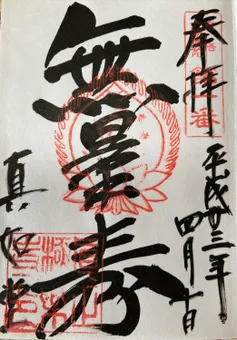 奉拝
平成廿三年
四月十日
無量寿
真如堂